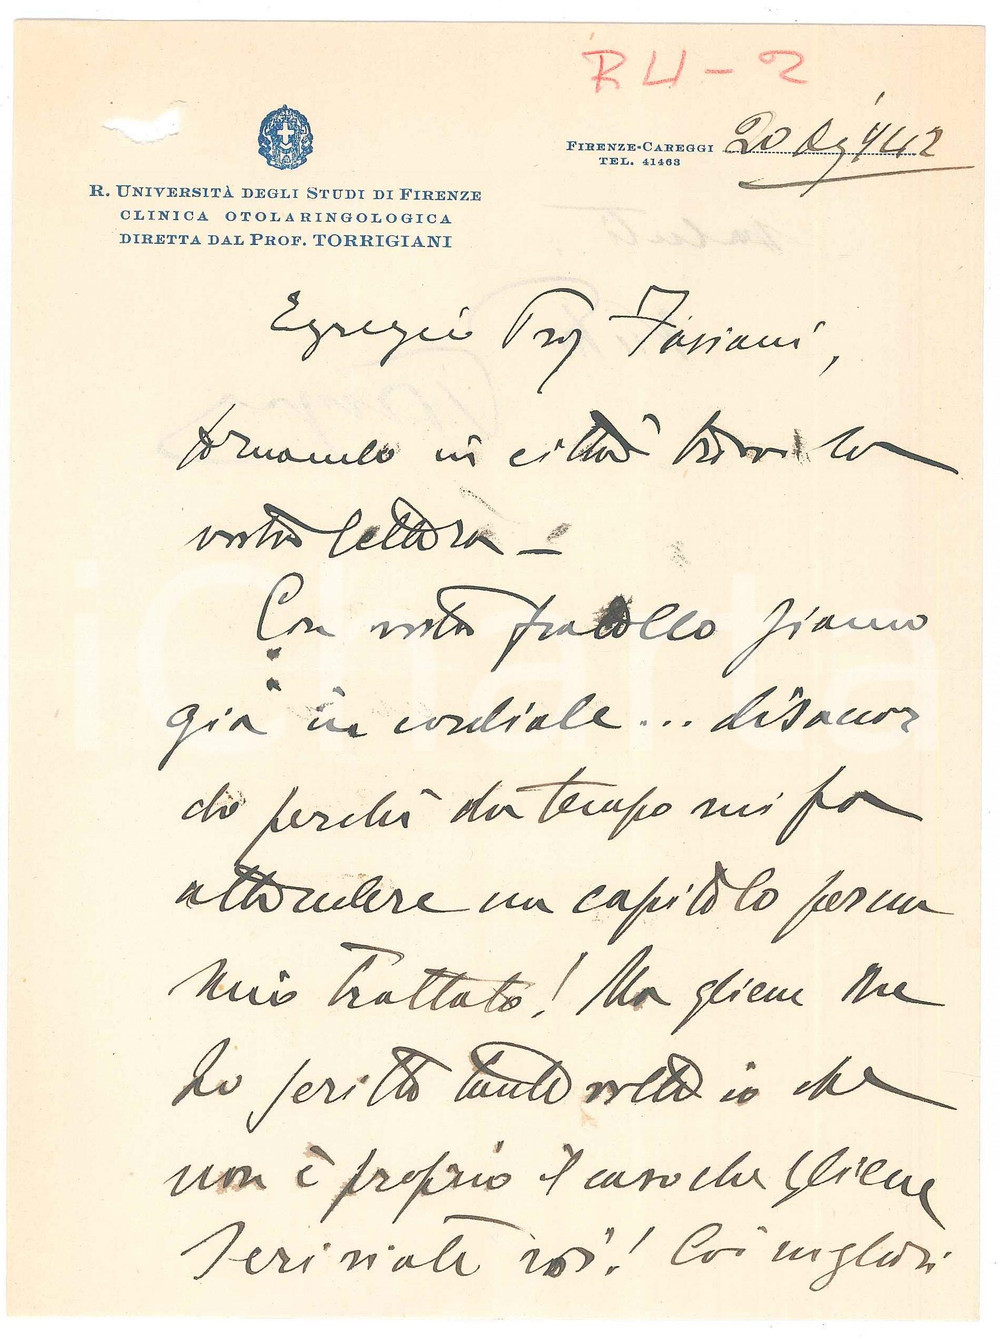 RU-2
FIRENZE-CAREGGI 20 Ag 1942
TEL. 41463
R. UNIVERSITÀ DEGLI STUDI DI FIRENZE
CLINICA OTOLARINGOLOGICA
DIRETTA DAL PROF. TORRIGIANI
Egregio Prof Fasiani,
tornando in città trovo la
vostra lettera –
Con vostro fratello siamo
già in cordiale... disaccor
do perchè da tempo mi fa
attendere un capitolo per un
mio trattato! Ma gliene
ho scritto tante volte io che
non è proprio il caso che gliene
scriviate voi! Coi migliori
iCharta